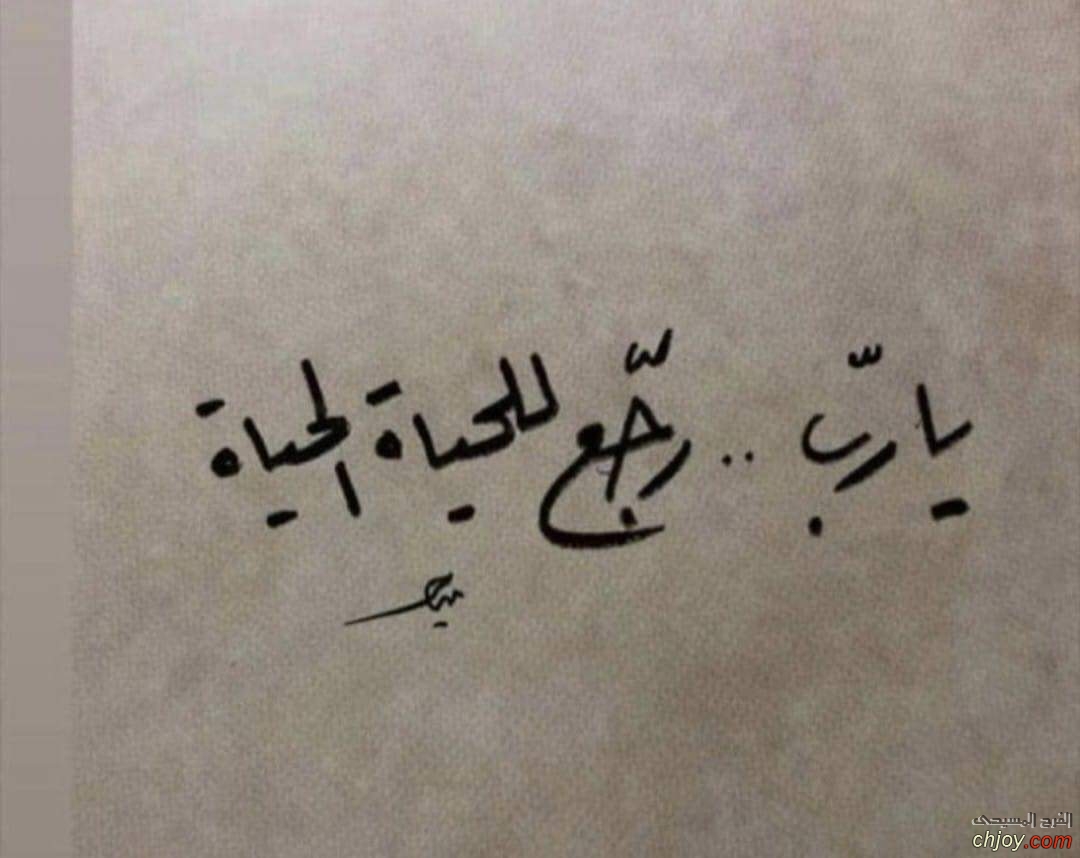 يا ربّ .. رجّع للحياة الحياة
الفرح المسيحى
chjoy.com